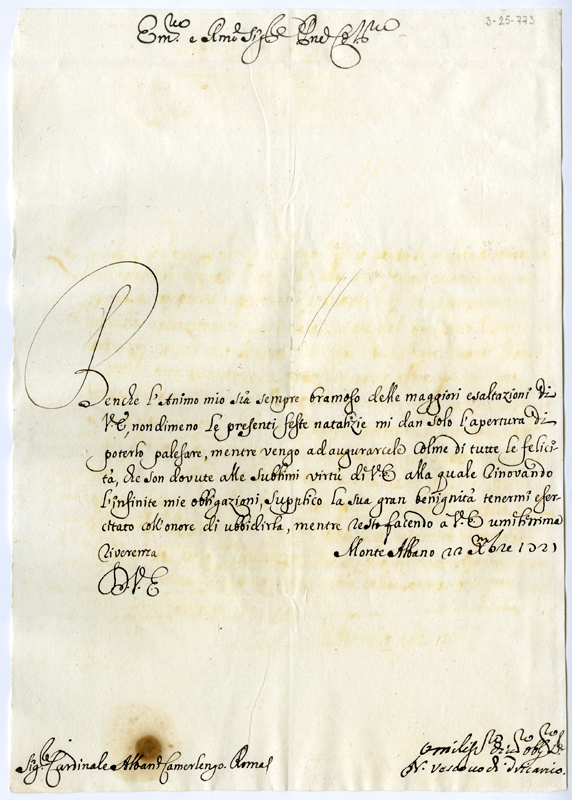 3-25-773
Em.mo e Rmo Sig.re
Benche l'Animo mio sia sempre bramoso delle maggiori esaltazioni di
V.E., nondimeno le presenti feste natalizie mi dan solo l'apertura di
poterlo palesare, mentre vengo ad augurarcele colme di tutte le felici
tà, che son dovute alle sublimi virtù di V.E. alla quale rinovando
l'infinite mie obligazioni, supplico la sua gran benignità tenermi eser
citato coll'onore di ubbidirla, mentre resto facendo a V.E. umilissima
riverenza
Monte Albano 22 Xbre 1721
D.V.E.
Sig.re Cardinale Albani Camerlengo. Roma
Vescovo di